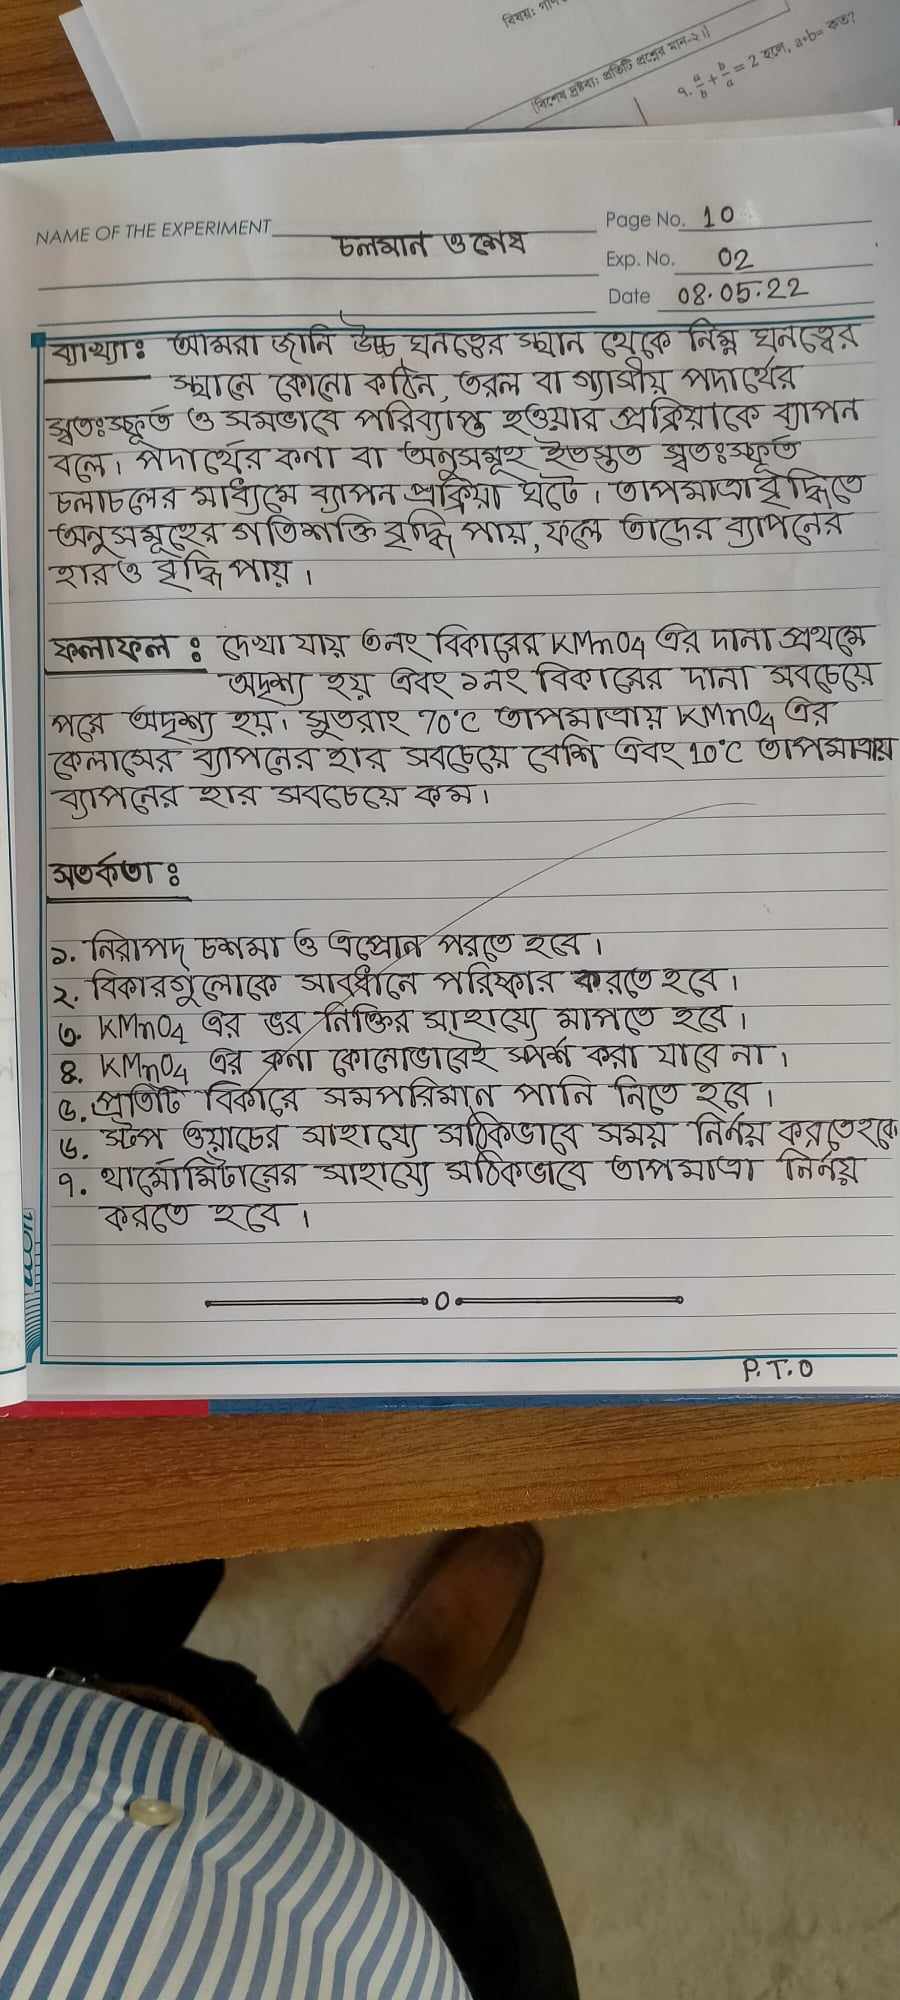 বিষয়: গণি
(বিশেষ দ্রষ্টব্য: প্রতিটি প্রশ্নের মান-২।)
৭. a/b + b/a = 2 হলে, a+b= কত?
NAME OF THE EXPERIMENT চলমান ও শেষ
Page No. 10
Exp. No. 02
Date 08.05.22
ব্যাখ্যাঃ আমরা জানি উচ্চ ঘনত্বের স্থান থেকে নিম্ন ঘনত্বের
স্থানে কোনো কঠিন, তরল বা গ্যাসীয় পদার্থের
স্বতঃস্ফূর্ত ও সমভাবে পরিব্যাপ্ত হওয়ার প্রক্রিয়াকে ব্যাপন
বলে। পদার্থের কনা বা অনুসমূহ ইতস্তত স্বতঃস্ফূর্ত
চলাচলের মাধ্যমে ব্যাপন প্রক্রিয়া ঘটে। তাপমাত্রা বৃদ্ধিতে
অনুসমূহের গতিশক্তি বৃদ্ধি পায়, ফলে তাদের ব্যাপনের
হারও বৃদ্ধি পায়।
ফলাফল : দেখা যায় ৩নং বিকারের KMnO4 এর দানা প্রথমে
অদৃশ্য হয় এবং ১নং বিকারের দানা সবচেয়ে
পরে অদৃশ্য হয়। সুতরাং 70°C তাপমাত্রায় KMnO4 এর
কেলাসের ব্যাপনের হার সবচেয়ে বেশি এবং 10°C তাপমাত্রায়
ব্যাপনের হার সবচেয়ে কম।
সতর্কতা ঃ
১. নিরাপদ চশমা ও এপ্রোন পরতে হবে।
২. বিকারগুলোকে সাবধানে পরিষ্কার করতে হবে।
৩. KMnO4 এর ভর নিক্তির সাহায্যে মাপতে হবে।
৪. KMnO4 এর কনা কোনোভাবেই স্পর্শ করা যাবে না।
৫. প্রতিটি বিকারে সমপরিমান পানি নিতে হবে।
৬. স্টপ ওয়াচের সাহায্যে সঠিকভাবে সময় নির্নয় করতে হবে
৭. থার্মোমিটারের সাহায্যে সঠিকভাবে তাপমাত্রা নির্নয়
করতে হবে।
P.T.O